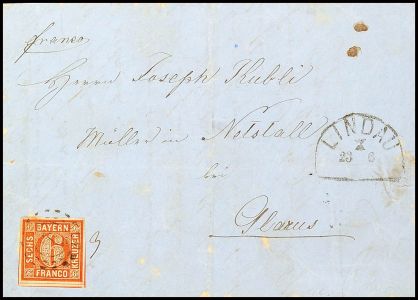 franco
Herrn Joseph Kubli
Müller in Netstall
bei
Glarus
LINDAU
X
29 6
BAYERN
SECHS
6
KREUZER
FRANCO
3